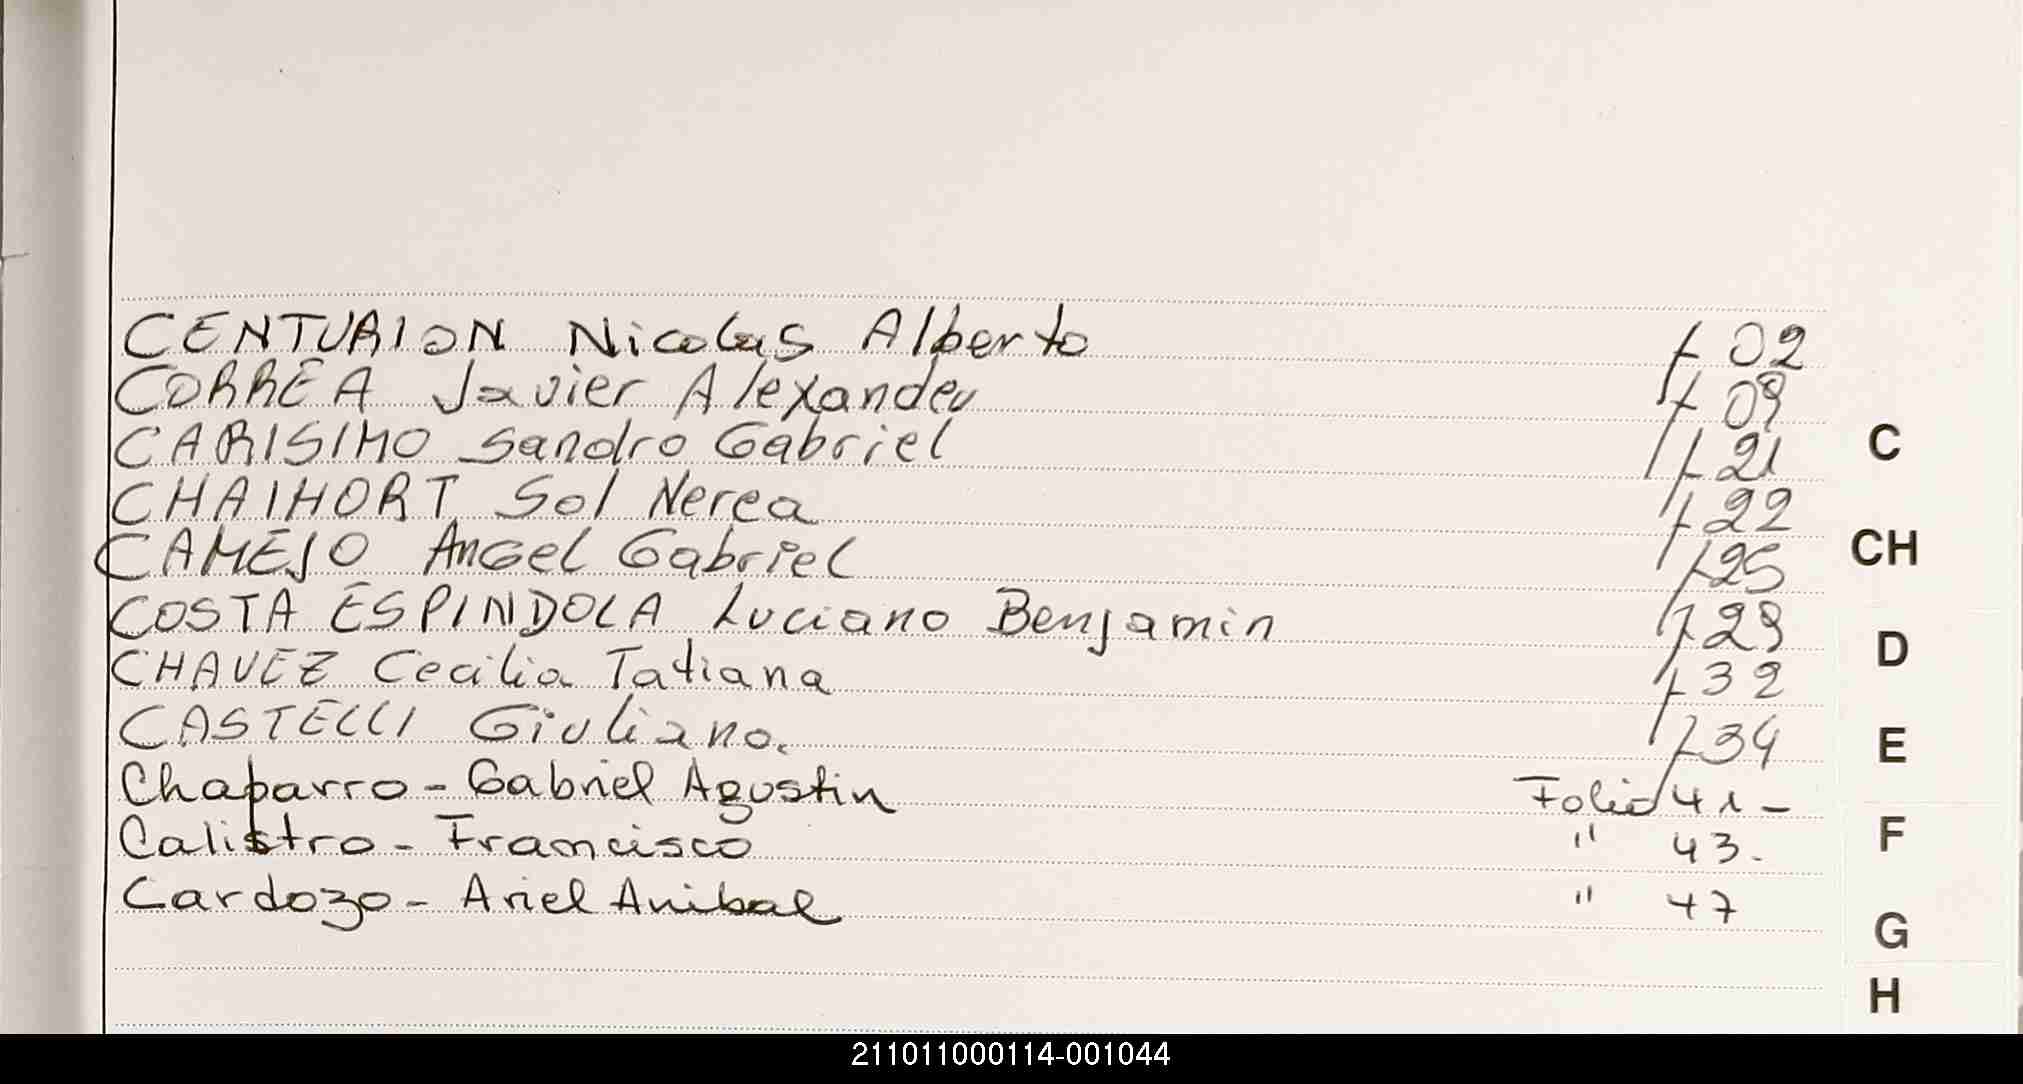 CENTURION Nicolas Alberto f 02
CORREA Javier Alexander f 09
CARISIMO Sandro Gabriel f 21
C
CHAIHORT Sol Nerea f 22
CAMEJO Angel Gabriel f 25
CH
COSTA ESPINDOLA Luciano Benjamin f 29
D
CHAVEZ Cecilia Tatiana f 32
CASTELLI Giuliano. f 34
E
Chaparro - Gabriel Agustin Folio 41 -
Calistro - Francisco " 43.
F
Cardozo - Ariel Anibal " 47
G
H
211011000114-001044